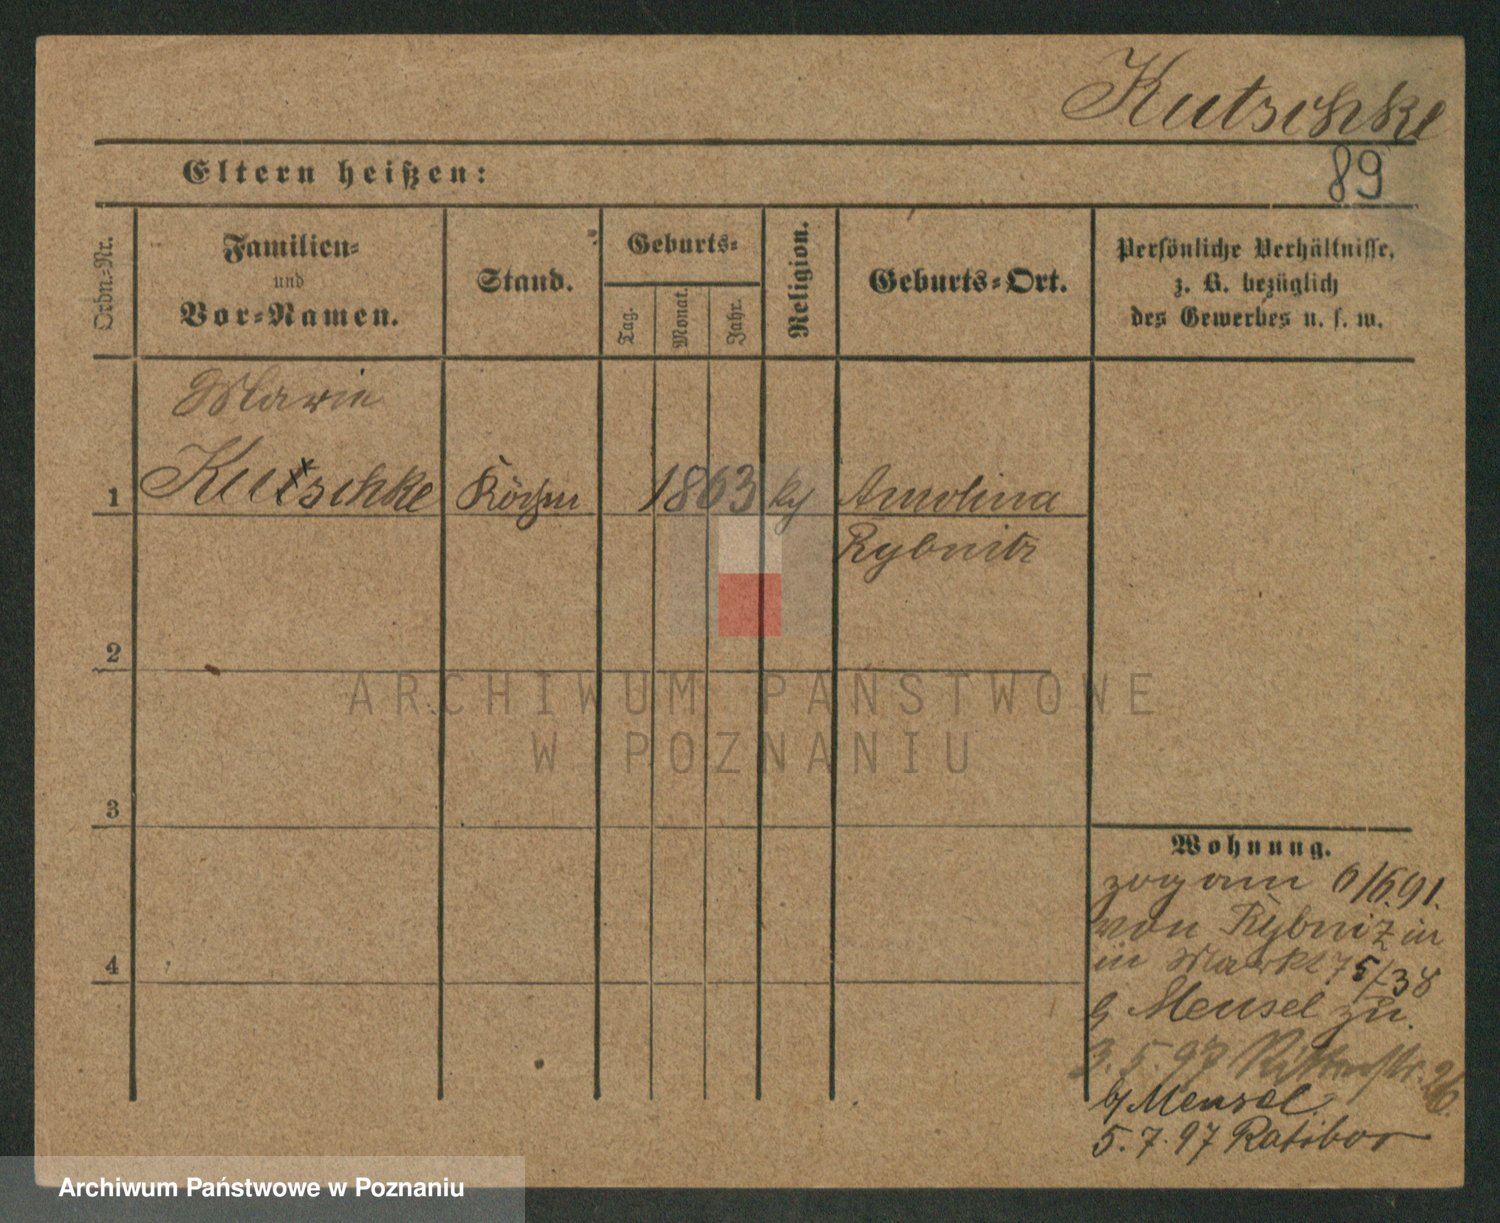 Kutschke
Eltern heißen:
89
Ordn.-Nr.
Familien-
und
Vor-Namen.
Stand.
Geburts-
Tag.
Monat.
Jahr.
Religion.
Geburts-Ort.
Persönliche Verhältnisse,
z. B. bezüglich
des Gewerbes u. s. w.
Marie
1 Kutschke Köchin 1863 Annolina
Rybnitz
2
ARCHIWUM PAŃSTWOWE
W POZNANIU
3
Wohnung.
zog am 6/6.91.
von Rybniz in
in Markt 75/38
b Mensel zu.
3.5.97 Ritterstr. 26.
by Mensel
5.7.97 Ratibor
4
Archiwum Państwowe w Poznaniu